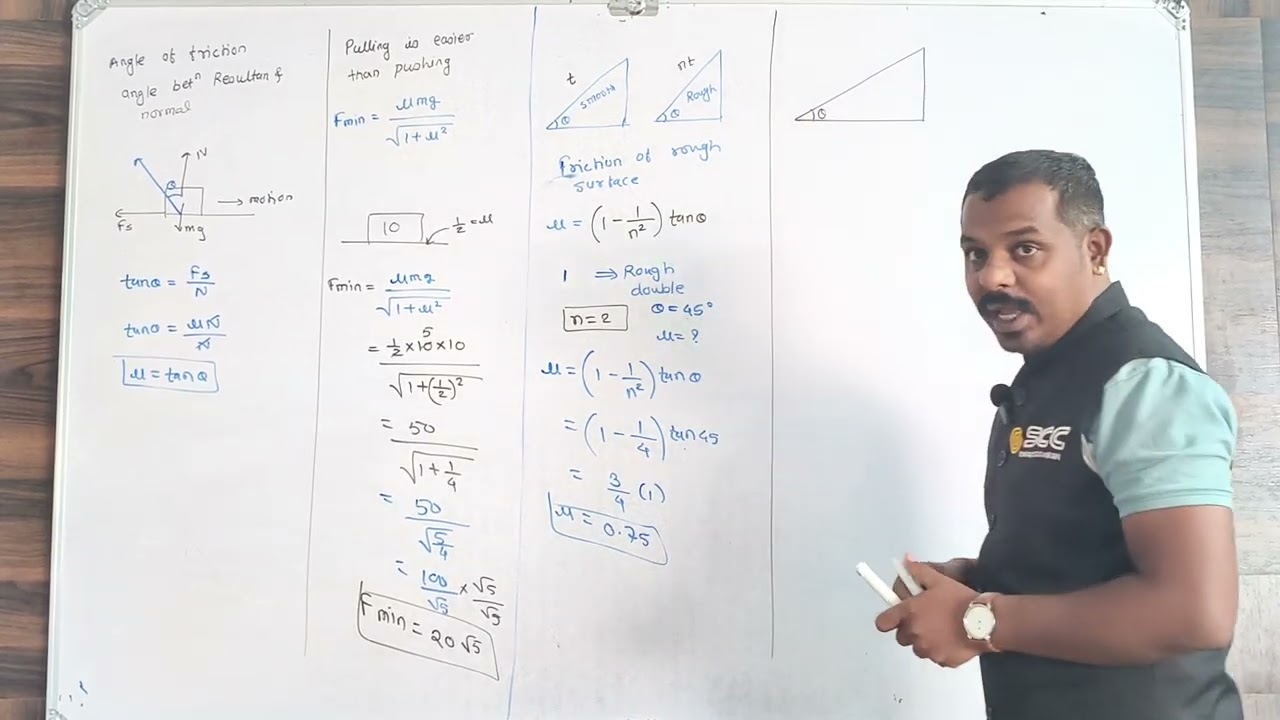 Angle of friction
angle betⁿ Resultan &
normal
N
θ
→ motion
Fs
mg
tanθ = Fs/N
tanθ = μN/N
μ = tanθ
Pulling is easier
than pushing
Fmin = μmg/√(1+μ²)
10
1/2 = μ
Fmin = μmg/√(1+μ²)
5
= 1/2 × 10 × 10/√(1+(1/2)²)
= 50/√(1+1/4)
= 50/√(5/4)
= 100/√5 × √5/√5
Fmin = 20√5
t
smooth
θ
nt
Rough
θ
Friction of rough
surface
μ = (1 - 1/n²) tanθ
1 ⇒ Rough
double
n = 2
θ = 45°
μ = ?
μ = (1 - 1/n²) tanθ
= (1 - 1/4) tan45
= 3/4 (1)
μ = 0.75
θ
SCC